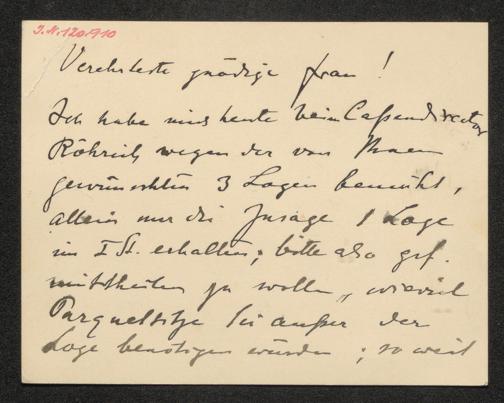 J.N. 120.910
Verehrteste gnädige Frau!
Ich habe mich heute beim Cassendirector
Röhrich wegen der von Ihnen
gewünschten 3 Logen bemüht,
allein nur die Zusage 1 Loge
im I St. erhalten; bitte also gef.
mittheilen zu wollen, wieviel
Parquetsitze Sie außer der
Loge benötigen würden; so weit